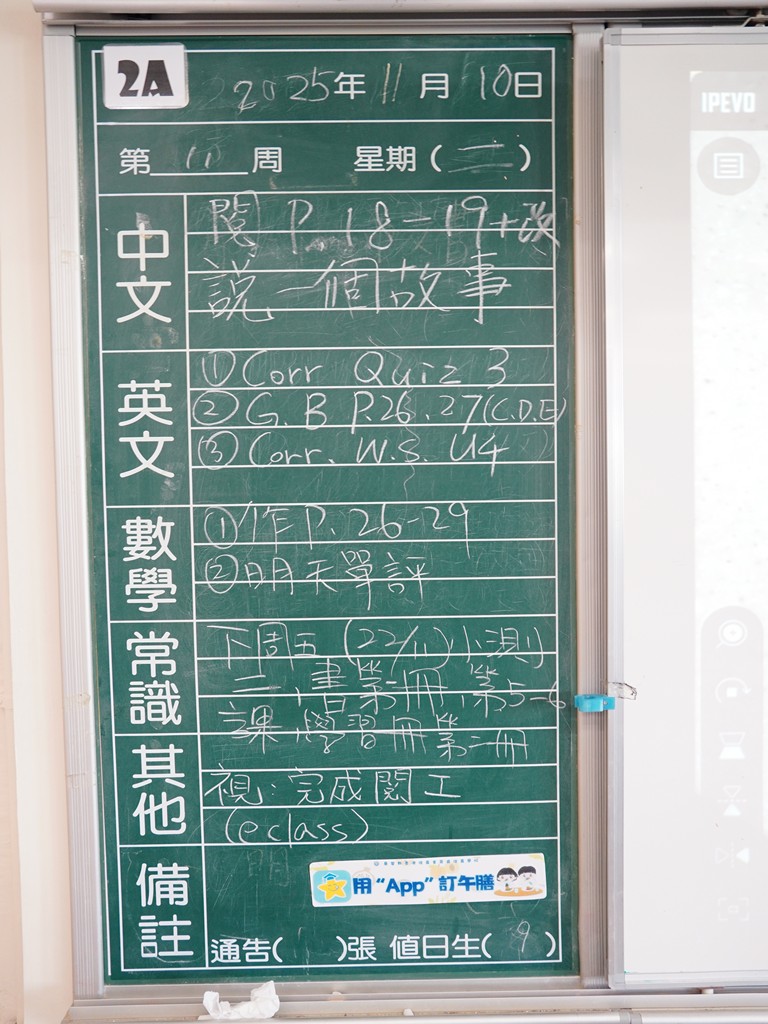 2A
2025年 11月 10日
第 11 周 星期(二)
中文
閱 P.18-19+改
說一個故事
英文
① Corr Quiz 3
② G.B P.26.27(C.D.E)
③ Corr. W.S. U4
數學
①作P.26-29
②明天單評
常識
下周五(22/11)小測
二,書第一冊,第5-6
課,學習冊第二冊
其他
視:完成閱工
(eclass)
備註
用“App”訂午膳
通告( )張 值日生( 9 )
IPEVO